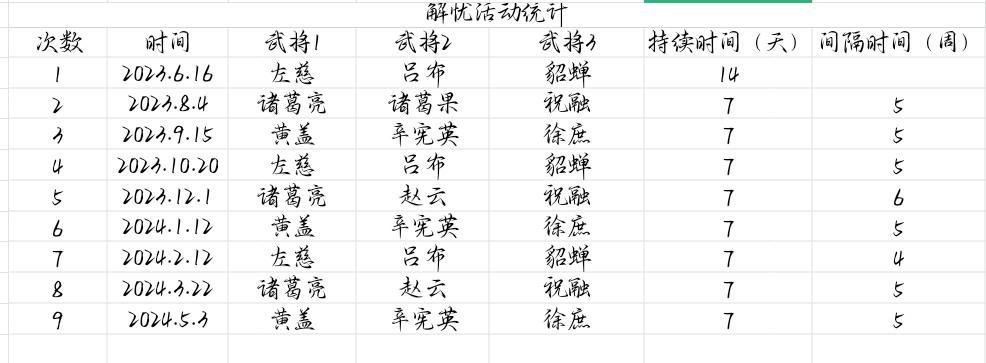 解忧活动统计
次数 时间 武将1 武将2 武将3 持续时间（天） 间隔时间（周）
1 2023.6.16 左慈 吕布 貂蝉 14
2 2023.8.4 诸葛亮 诸葛果 祝融 7 5
3 2023.9.15 黄盖 辛宪英 徐庶 7 5
4 2023.10.20 左慈 吕布 貂蝉 7 5
5 2023.12.1 诸葛亮 赵云 祝融 7 6
6 2024.1.12 黄盖 辛宪英 徐庶 7 5
7 2024.2.12 左慈 吕布 貂蝉 7 4
8 2024.3.22 诸葛亮 赵云 祝融 7 5
9 2024.5.3 黄盖 辛宪英 徐庶 7 5